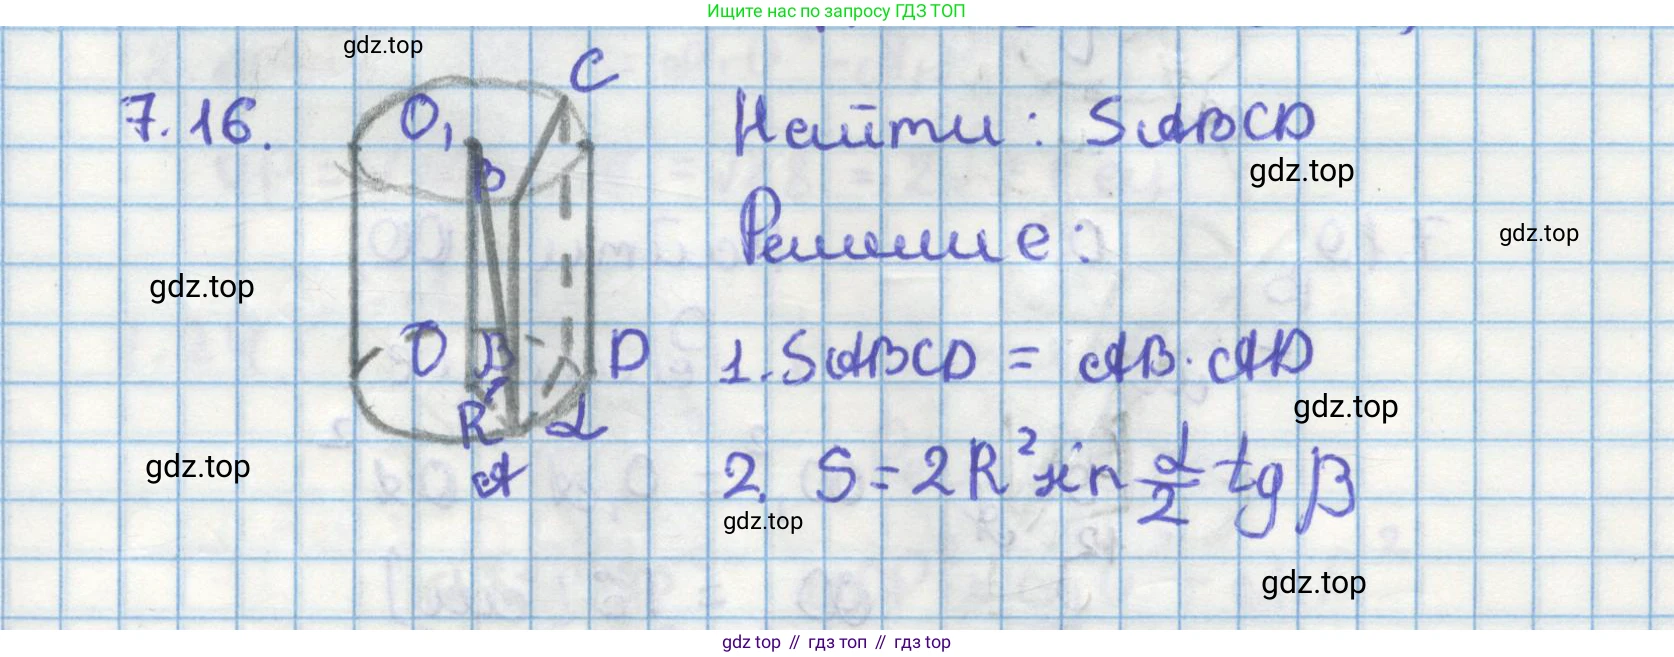 Ищите нас по запросу ГДЗ ТОП
gdz.top
7.16.
C
O₁
β
O
B
D
R
α
A
Найти: SABCD
gdz.top
Решение:
gdz.top
gdz.top
1. SABCD = AB·AD
gdz.top
gdz.top
2. S = 2R² sin α/2 tg β
gdz.top
gdz.top
gdz top // гдз топ // гдз top